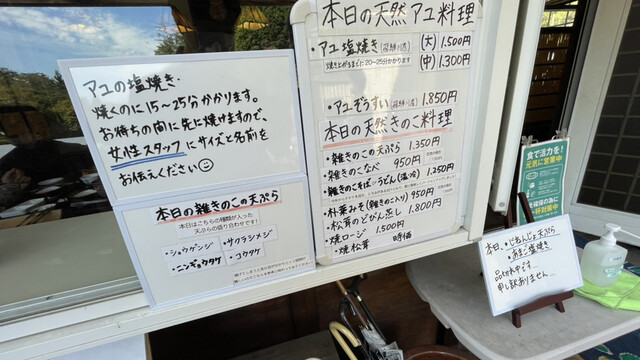 アユの塩焼き.
焼くのに15〜25分かかります。
お待ちの間に先に焼けますので、
女性スタッフにサイズと名前を
お伝えください☺
本日の雑きのこの天ぷら
本日はこちらの種類が入った
天ぷらの盛り合わせです!
・ショウゲンジ ・サクラシメジ
・ニンギョウタケ ・コウタケ
本日の天然アユ料理
・アユ塩焼き (大) 1.500円
焼き上がるまでに20〜25分かかります (中) 1.300円
・アユぞうすい 1.850円
本日の天然きのこ料理
・雑きのこの天ぷら 1.350円
・雑きのこなべ 950円
・雑きのこそば・うどん(温・冷) 1.250円
・朴葉みそ(雑きのこ入り) 950円
・松茸のどびん蒸し 1.800円
・焼ロージ 1.500円
・焼松茸 時価
食で活力を!
元気に営業中
本日、・じねんじょ天ぷら
・あまご塩焼き
品切れ中です...
申し訳ありません...